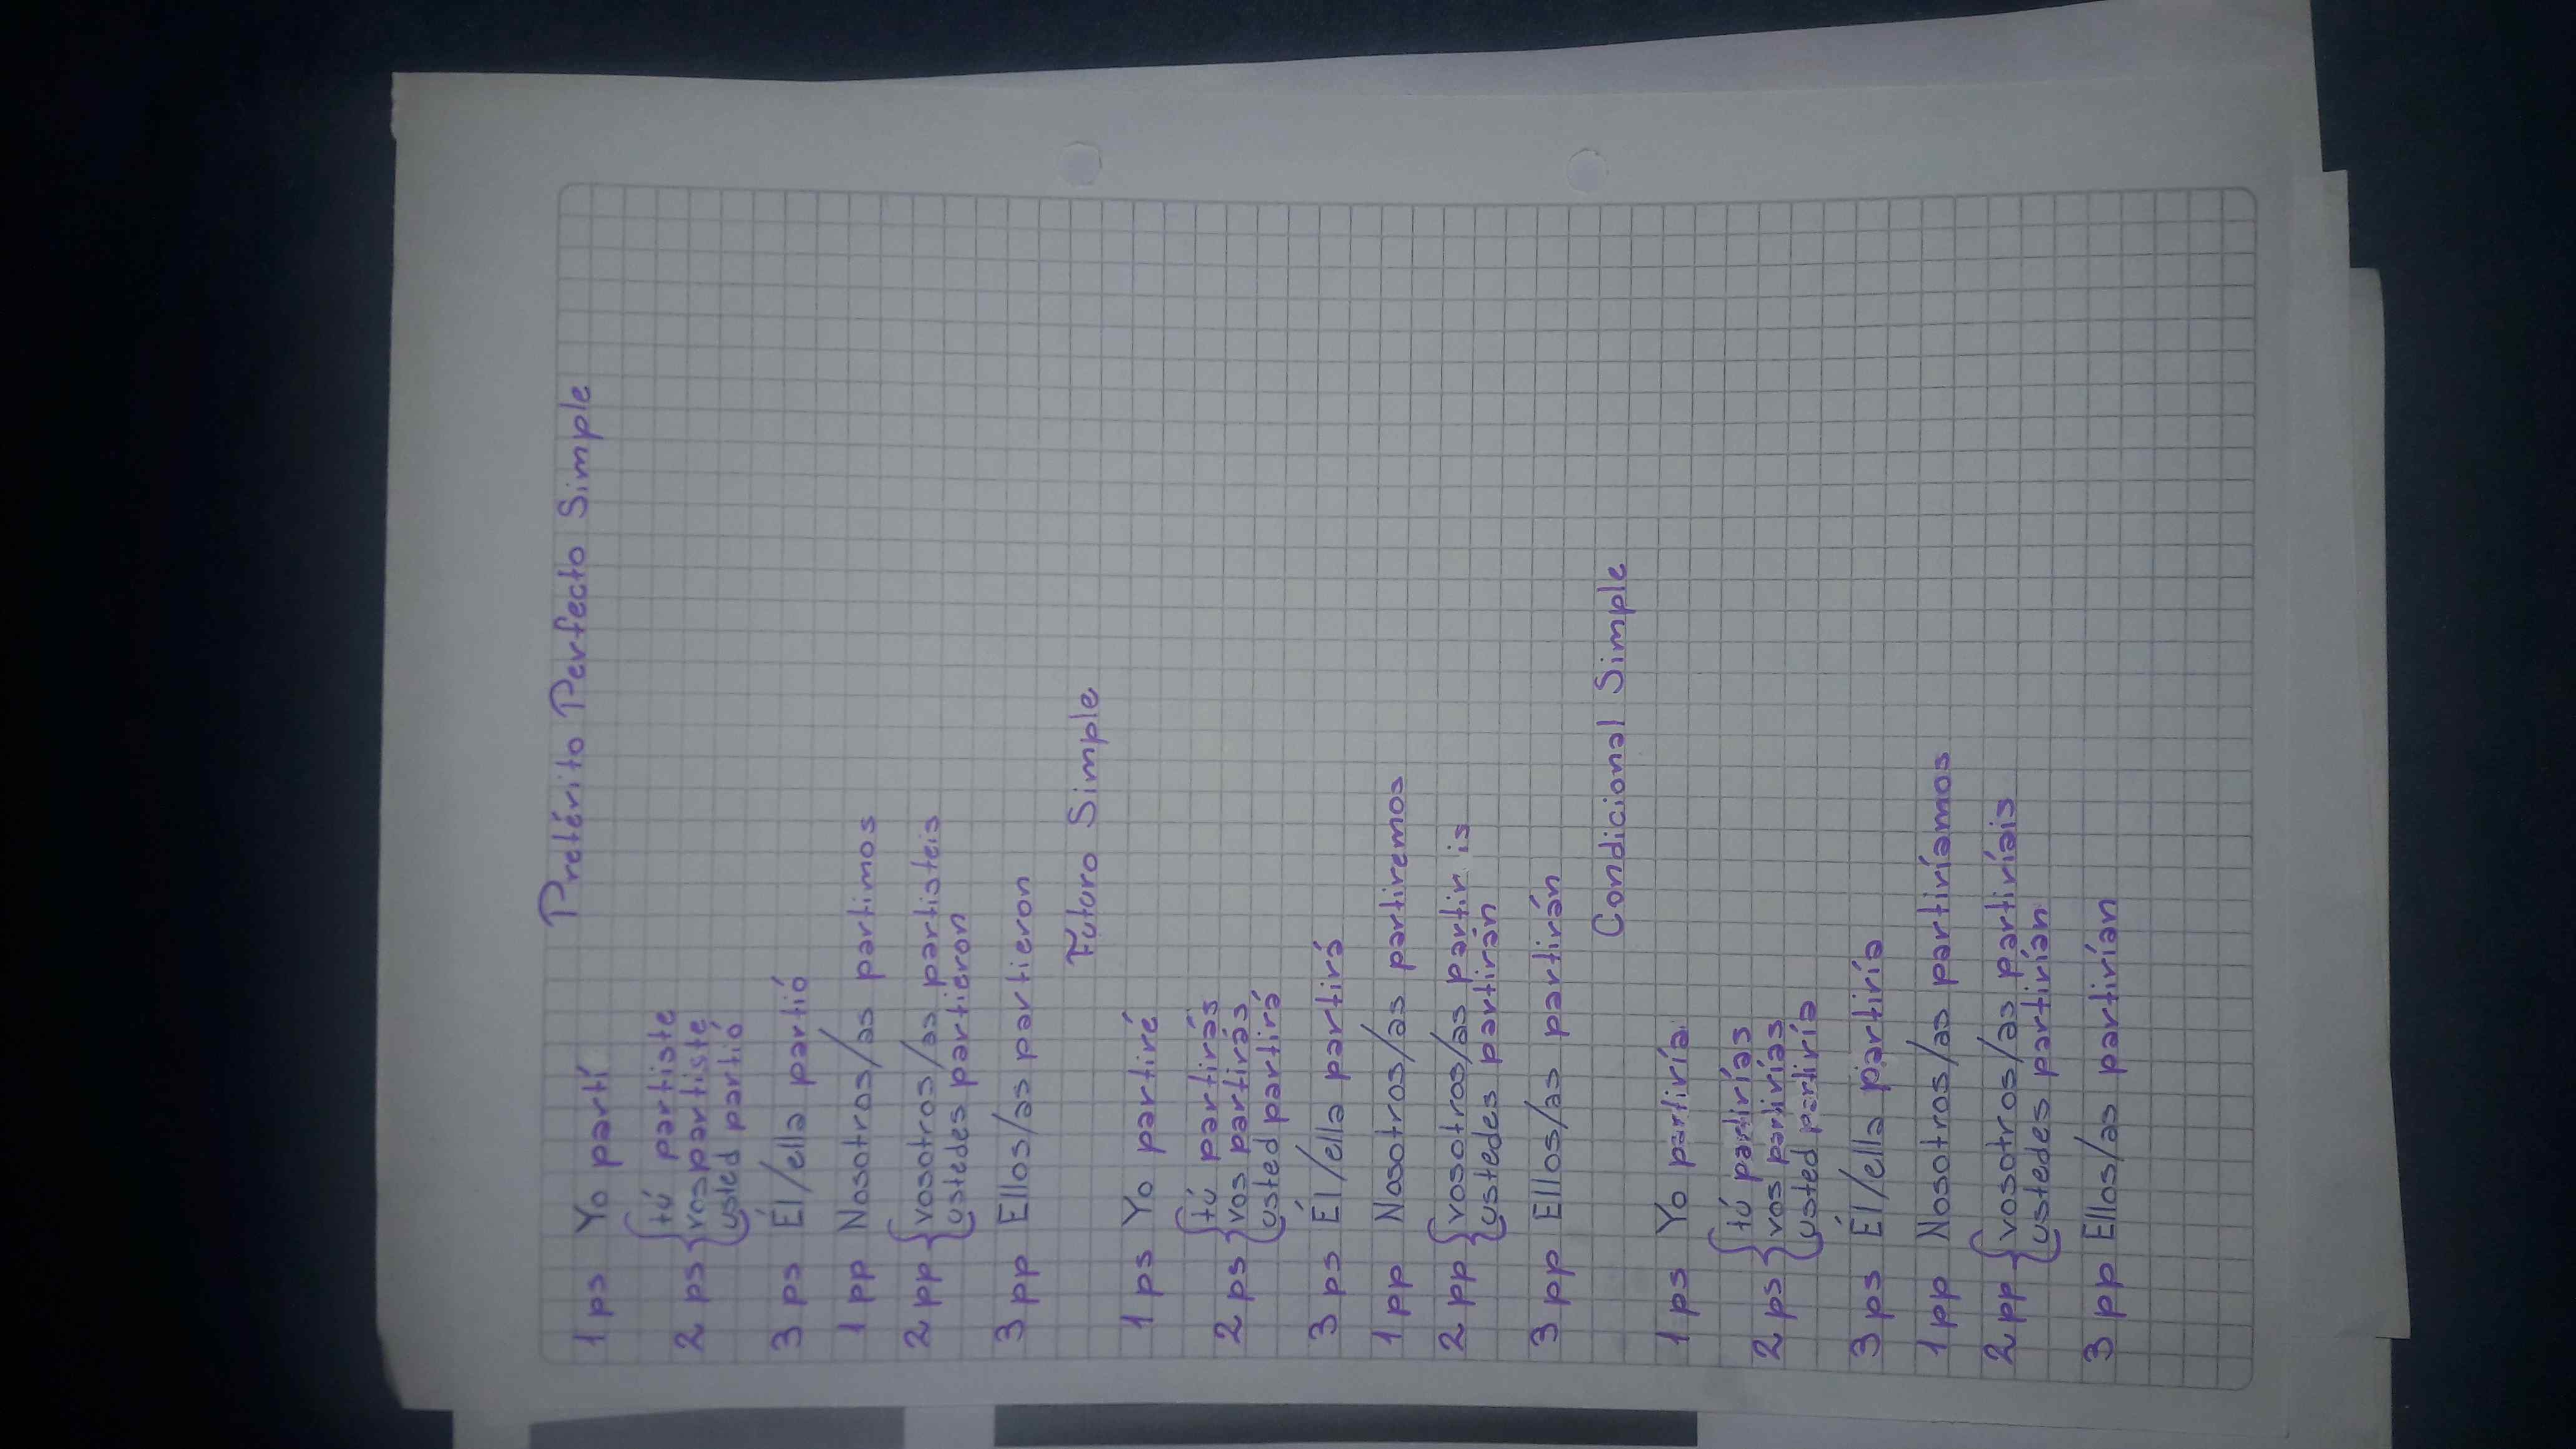 Pretérito Perfecto Simple
1 ps Yo partí
tú partiste
2 ps vos partiste
usted partió
3 ps Él/ella partió
1 pp Nosotros/as partimos
2 pp vosotros/as partisteis
ustedes partieron
3 pp Ellos/as partieron
Futuro Simple
1 ps Yo partiré
tú partirás
2 ps vos partirás
usted partirá
3 ps Él/ella partirá
1 pp Nosotros/as partiremos
2 pp vosotros/as partir is
ustedes partirán
3 pp Ellos/as partirán
Condicional Simple
1 ps Yo partiría
tú partirías
2 ps vos partirías
usted partiría
3 ps Él/ella partiría
1 pp Nosotros/as partiríamos
2 pp vosotros/as partiríais
ustedes partirían
3 pp Ellos/as partirían